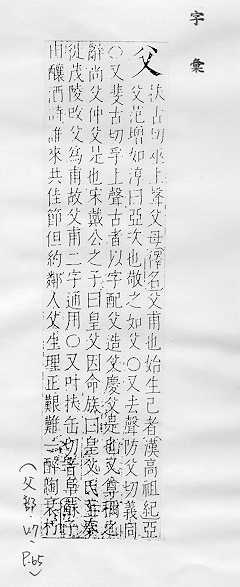 字彙
父 扶古切巫上聲父母釋名父甫也始生己者漢高祖紀亞
父范增如淳曰亞次也敬之如父○又去聲防父切義同
○又斐古切孚上聲古者以字配父造父慶父是也又尊稱也
辭尚父仲父是也宋戴公之子曰皇父因命族曰皇父氏至秦
從茂陵改父爲甫故父甫二字通用○又叶扶缶切
由釀酒詩誰來共佳節但約鄰人父生理正艱難一醉陶衰朽
(父部.47)
P.65)